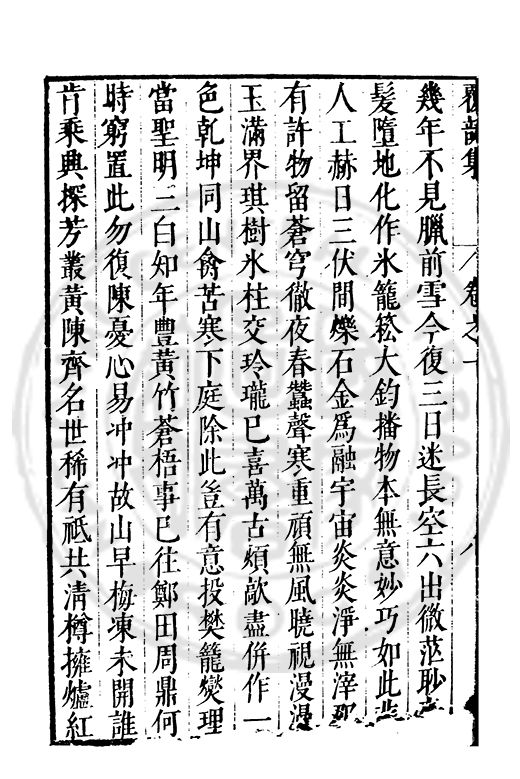 覆瓿集　卷之十　八
幾年不見臘前雪今復三日迷長空六出微茫眇
髮墮地化作氷籠菘大鈞播物本無意妙巧如此非
人工赫日三伏間爍石金爲融宇宙炎炎淨無滓
有許物留蒼穹徹夜春蠶聲寒重頑無風曉視漫漫
玉滿界琪樹氷柱交玲瓏已喜萬古煩歊盡併作一
色乾坤同山禽苦寒下庭除此豈有意投樊籠爕理
當聖明三白知年豐黃竹蒼梧事已往鄭田周鼎何
時窮置此勿復陳憂心易冲冲故山早梅凍未開誰
肯乘興探芳叢黃陳齊名世稀有祗共清樽擁爐紅